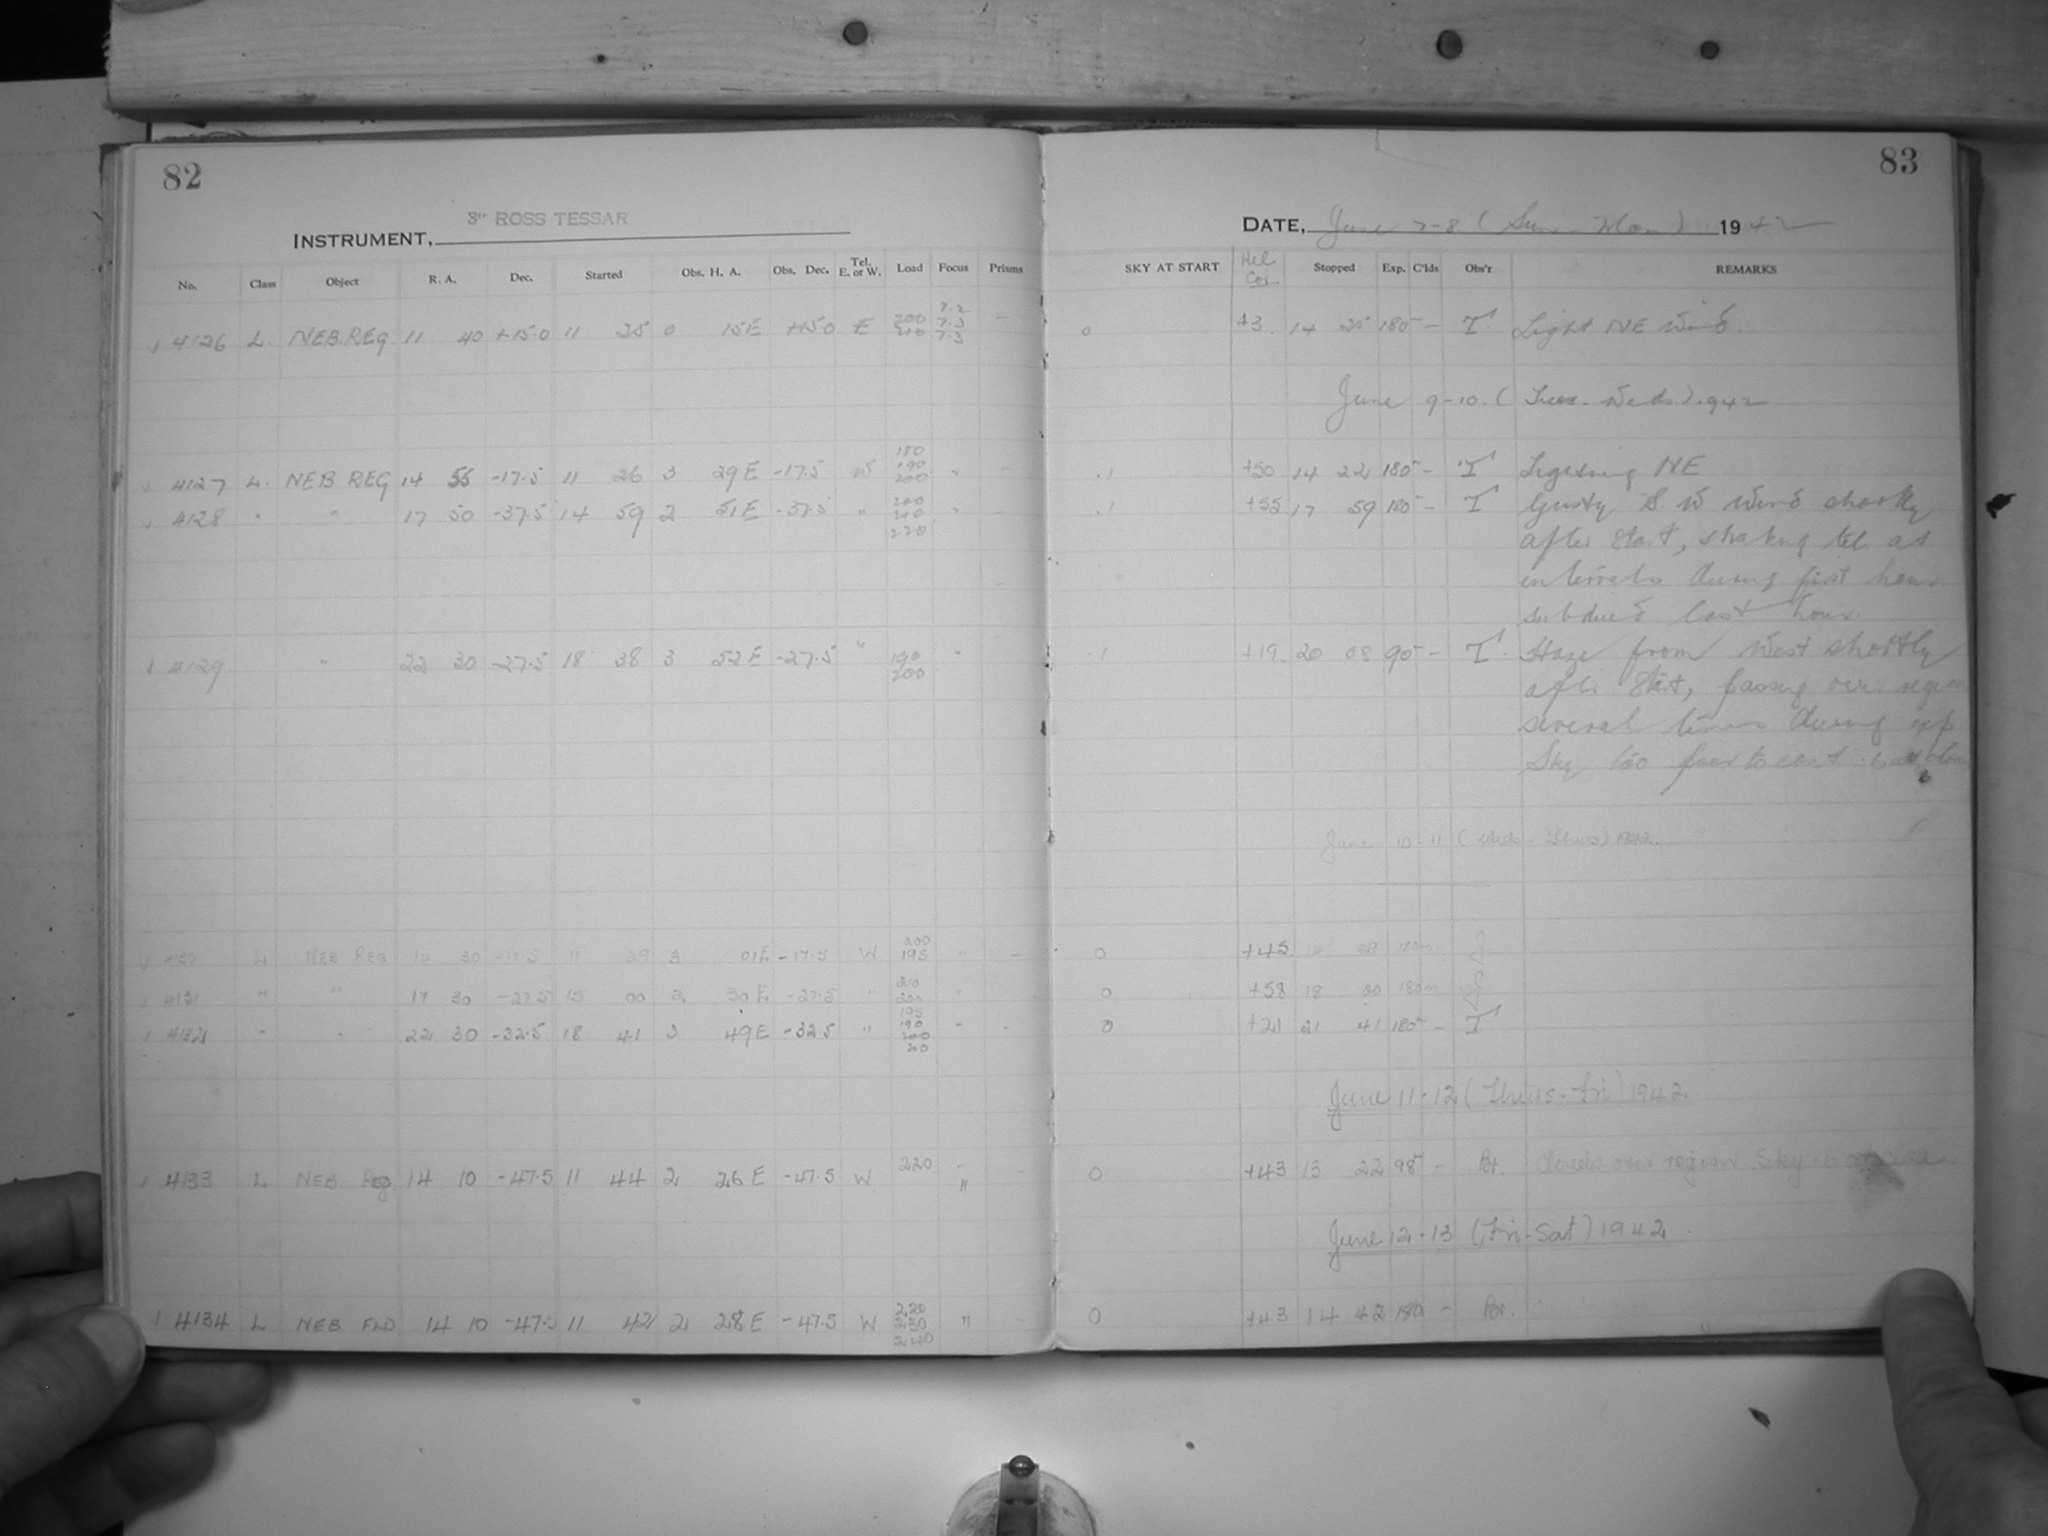 82
83
3" ROSS TESSAR
INSTRUMENT,
DATE, June 7-8 (Sun - Mon) 1942
No. Class Object R. A. Dec. Started Obs. H. A. Obs. Dec. Tel. E. or W. Load Focus Prisms SKY AT START Hel Cor. Stopped Exp. C'lds Obs'r REMARKS
4126 L. NEB.REG. 11 40 +15.0 11 25 0 15E +15.0 E 200 210 7.2 7.3 7.3 - 0 +3 14 25 180 - T. Light NE Wind.
June 9-10. (Tues - Weds.) 1942
4127 L. NEB REG 14 55 -17.5 11 26 3 29E -17.5 W 180 190 200 " - .1 +50 14 22 180 - T Lightning NE
4128 " " 17 50 -37.5 14 59 2 51E -37.5 " 200 210 220 " - .1 +55 17 59 180 - T Gusty S.W Wind shortly
after start, shaking tel. at
intervals during first hour
subdued last hour.
4129 " 22 30 -27.5 18 38 3 52E -27.5 " 190 200 " .1 +19 20 08 90 - T. Haze from West shortly
after start, passing over region
several times during exp
Sky too poor to cont .6
June 10-11 (Weds - Thurs) 1942.
L NEB REG 14 30 -17.5 11 29 3 01E -17.5 W 200 195 " - 0 +45 14 29 180m J
4131 " " 17 30 -27.5 15 00 3 30E -27.5 " 210 200 195 " 0 +58 18 00 180m
4132 " " 22 30 -32.5 18 41 3 49E -32.5 " 190 200 210 " - 0 +21 21 41 180 - T
June 11-12 (Thurs-Fri) 1942
4133 L NEB Reg. 14 10 -47.5 11 44 2 26E -47.5 W 220 " - 0 +43 13 22 98 - Br. Clouds over region Sky .6
June 12-13 (Fri-Sat) 1942.
4134 L NEB FLD 14 10 -47.5 11 42 2 28E -47.5 W 220 230 240 " - 0 +43 14 42 180 - Br.